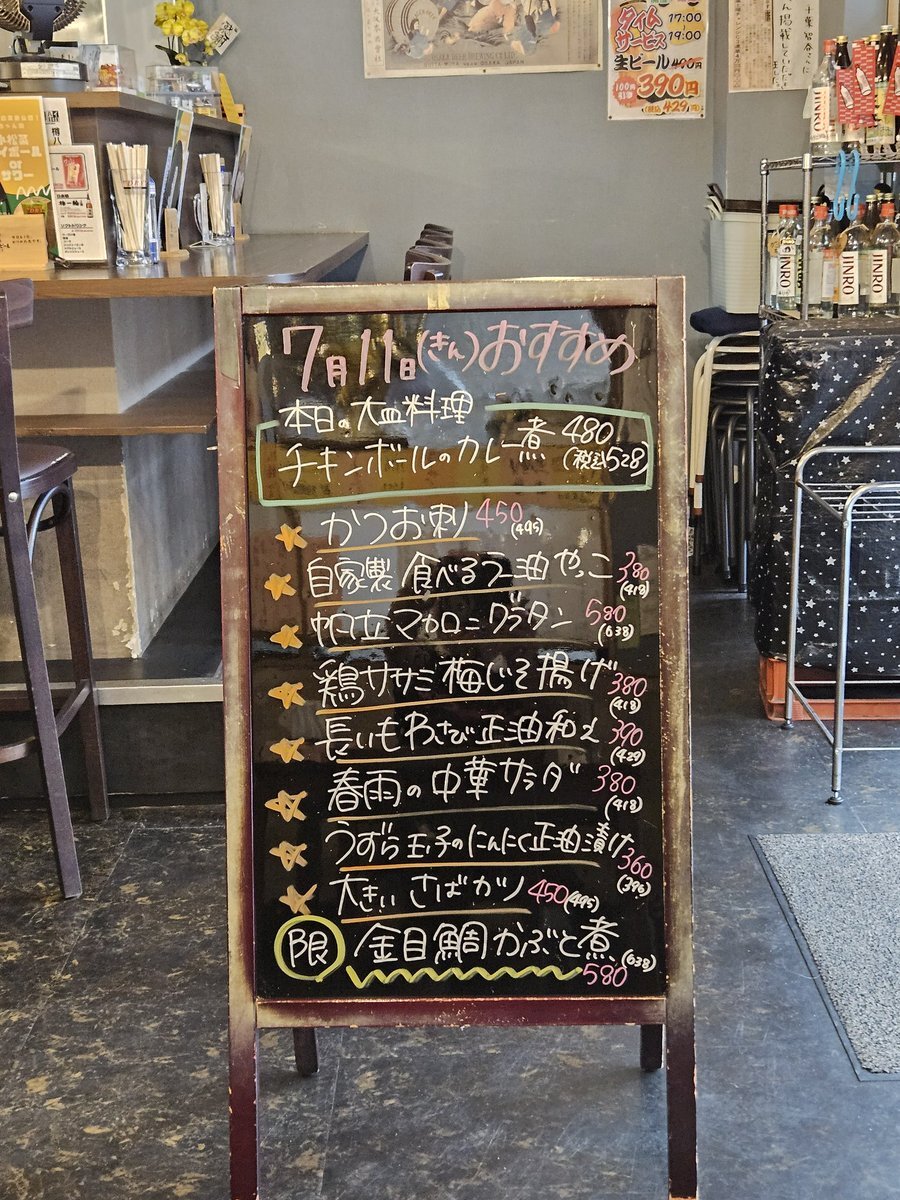 タイム
サービス
17:00
19:00
生ビール 490円
100円引き
390円
(税込429円)
ソフトドリンク
or
サワー
JINRO
JINRO
JINRO
JINRO
7月11日(きん)おすすめ
本日の大皿料理
チキンボールのカレー煮 480
(税込528)
かつお刺 450
(495)
自家製 食べるラー油やっこ 380
(418)
帆立マカロニグラタン 580
(638)
鶏ササミ梅じそ揚げ 380
(418)
長いもわさび正油和え 390
(429)
春雨の中華サラダ 380
(418)
うずら玉子のにんにく正油漬け 360
(396)
大きいさばカツ 450(495)
限 金目鯛かぶと煮 (638)
580